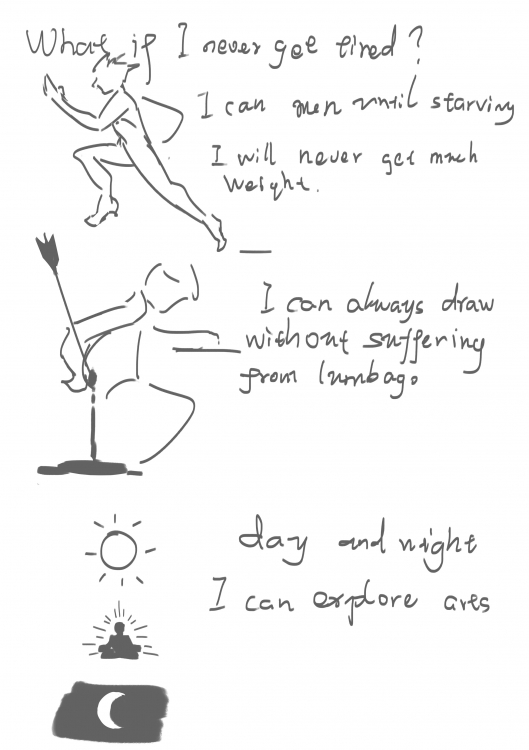 What if I never get tired?
I can run until starving
I will never get much
weight.
I can always draw
without suffering
from lumbago.
day and night
I can explore arts